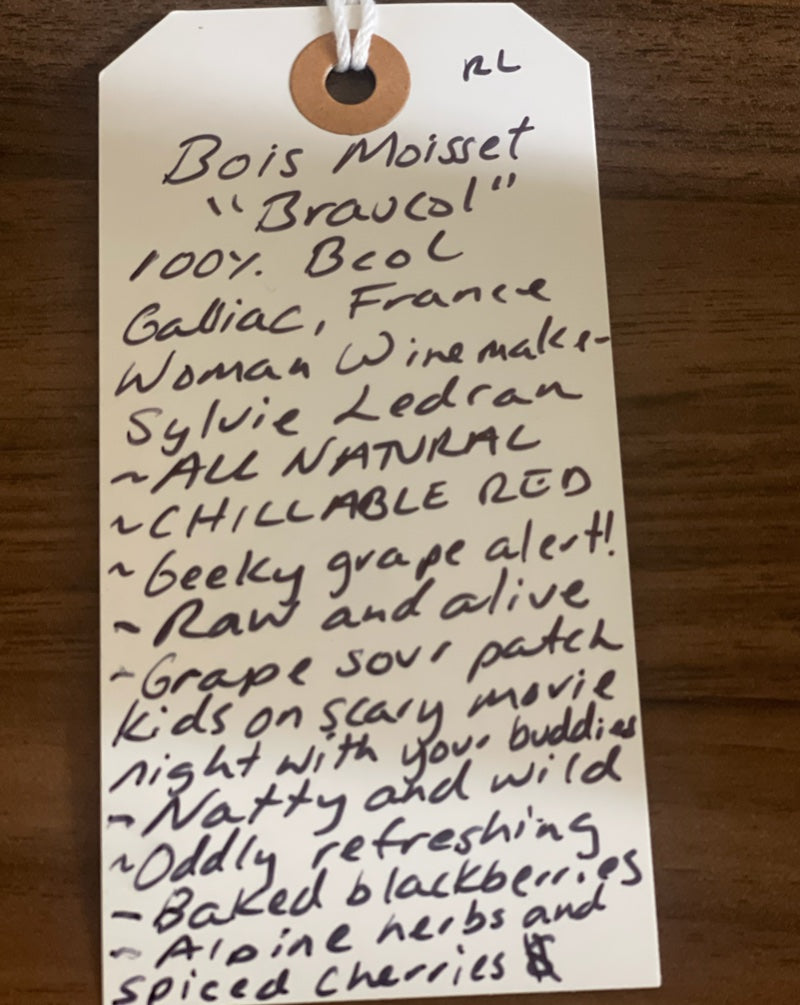 RL
Bois Moisset
"Braucol"
100% Bcol
Galliac, France
Woman Winemaker
Sylvie Ledran
~ALL NATURAL
~CHILLABLE RED
~Geeky grape alert!
- Raw and alive
-Grape sour patch
kids on scary movie
night with your buddies
- Natty and wild
~Oddly refreshing
- Baked blackberries
- Alpine herbs and
spiced cherries